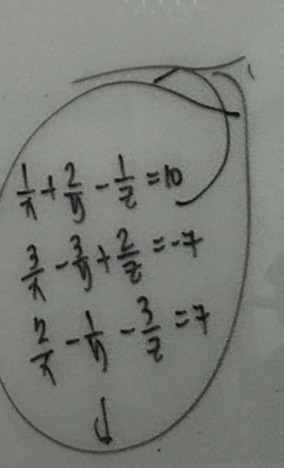 1/x + 2/y - 1/z = 10
3/x - 3/y + 2/z = -7
2/x - 1/y - 3/z = 7
↓